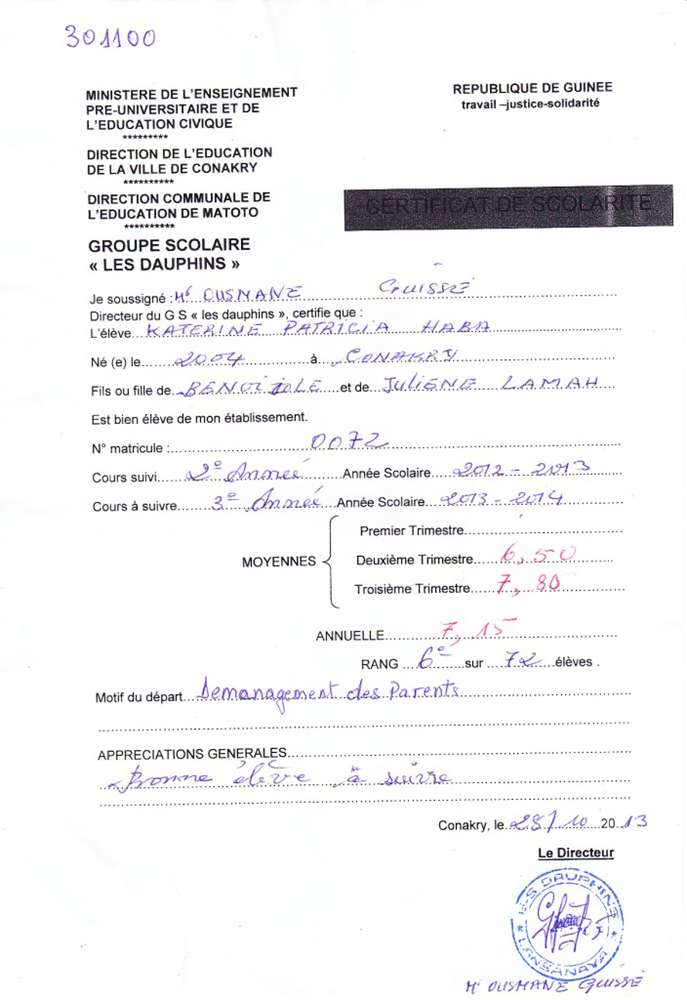 301100
MINISTERE DE L'ENSEIGNEMENT
PRE-UNIVERSITAIRE ET DE
L'EDUCATION CIVIQUE
*********
DIRECTION DE L'EDUCATION
DE LA VILLE DE CONAKRY
**********
DIRECTION COMMUNALE DE
L'EDUCATION DE MATOTO
**********
GROUPE SCOLAIRE
« LES DAUPHINS »
REPUBLIQUE DE GUINEE
travail –justice-solidarité
CERTIFICAT DE SCOLARITE
Je soussigné : Mr OUSMANE GUISSÉ
Directeur du G S « les dauphins », certifie que :
L'élève KATERINE PATRICIA HABA
Né (e) le 2004 à CONAKRY
Fils ou fille de BENOI et de JULIENE LAMAH
Est bien élève de mon établissement.
N° matricule : 0072
Cours suivi 2e Année Année Scolaire 2012 - 2013
Cours à suivre 3e Année Année Scolaire 2013 - 2014
MOYENNES
Premier Trimestre
Deuxième Trimestre 6,50
Troisième Trimestre 7,80
ANNUELLE 7,15
RANG 6e sur 72 élèves .
Motif du départ Demanagement des Parents
APPRECIATIONS GENERALES
Bonne élève à suivre
Conakry, le 28/10 2013
Le Directeur
G.S DAUPHINS
LANSANAYA
Mr OUSMANE GUISSÉ